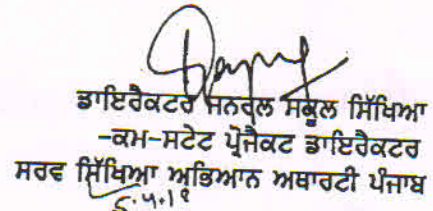 ਡਾਇਰੈਕਟਰ ਜਨਰਲ ਸਕੂਲ ਸਿੱਖਿਆ
-ਕਮ-ਸਟੇਟ ਪ੍ਰੋਜੈਕਟ ਡਾਇਰੈਕਟਰ
ਸਰਵ ਸਿੱਖਿਆ ਅਭਿਆਨ ਅਥਾਰਟੀ ਪੰਜਾਬ